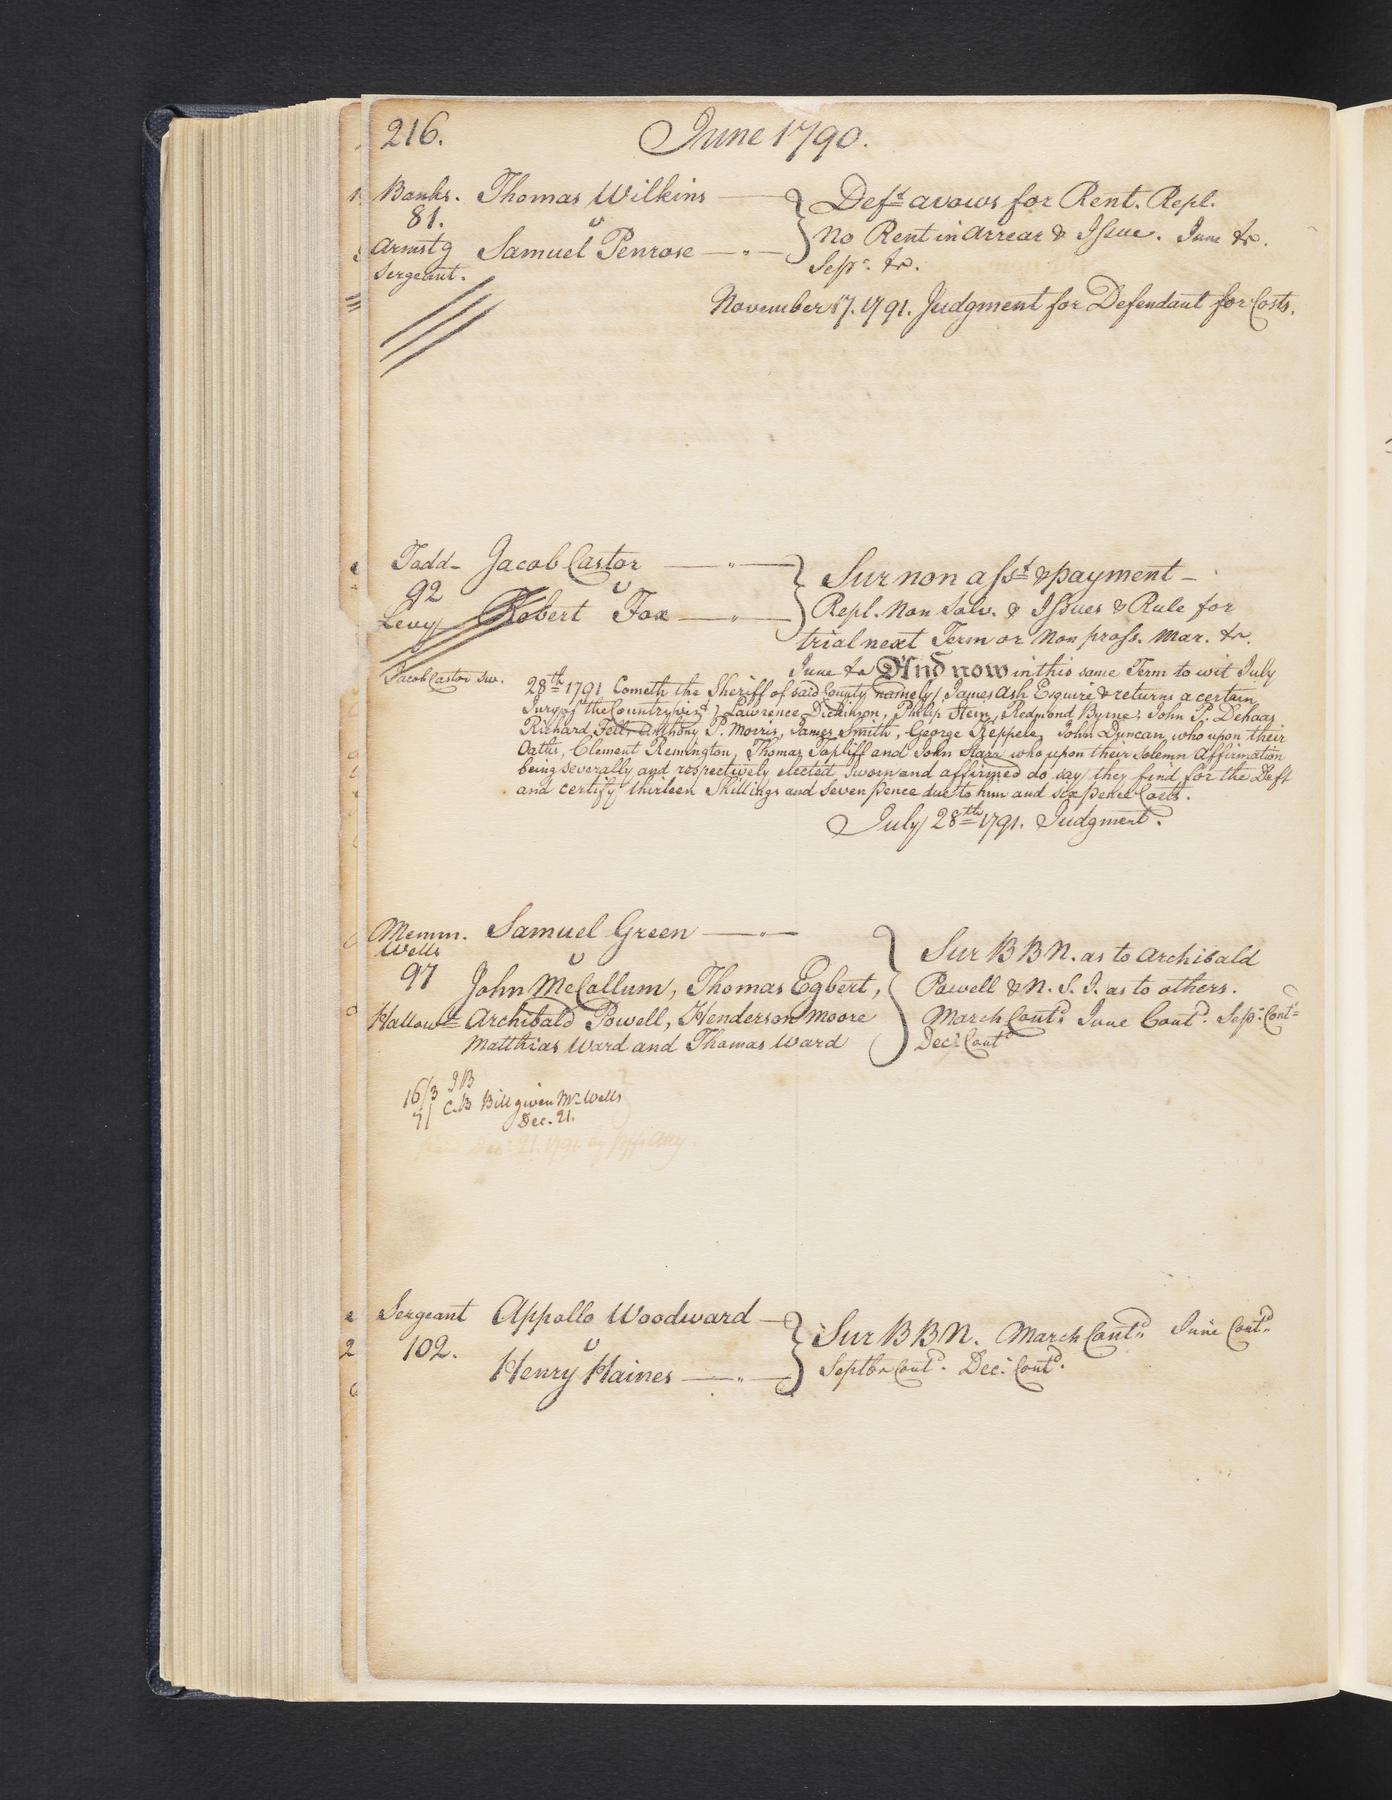 216. June 1790.
Banks. Thomas Wilkins — Deft avows for Rent. Repl.
81. v No Rent in arrear & Issue. June &c.
Armstg Samuel Penrose — " — Sepr. &c.
Sergeant.
November 17. 1791. Judgment for Defendant for Costs.
Todd — Jacob Castor — " — Sur non asst & payment —
92 v Repl. Non Solv. & Issues & Rule for
Levy Robert Fox — " — trial next Term or Non pross. Mar. &c.
Jacob Castor sw. June &c And now in this same Term to wit July
28th 1791 Cometh the Sheriff of said County namely James Ash Esquire & returns a certain
Jury of the Country vizt Lawrence Dickinson, Philip Stein, Redmond Byrne, John P. Dehaas
Richard Fell, Anthony P. Morris, James Smith, George Keppele, John Duncan, who upon their
Oaths, Clement Remington, Thomas Topliff and John Starr who upon their solemn Affirmation
being severally and respectively elected, sworn and affirmed do say they find for the Deft
and certify thirteen Shillings and seven pence due to him and six pence Costs.
July 28th 1791. Judgment.
Memm. Samuel Green — " —
Wells v Sur B B N. as to Archibald
97 John McCollum, Thomas Egbert, Powell & N. S. I. as to others.
Hallowll Archibald Powell, Henderson Moore March Contd. June Contd. Sepr. Contd
Matthias Ward and Thomas Ward Decr. Contd
16/3 J B
7/ C. B Bill given Mr. Wells
Dec. 21.
Dec. 21. 1791
Sergeant Appollo Woodward — Sur B B N. March Contd. June Contd.
102. v Septbr Contd. Dec. Contd.
Henry Haines — " —